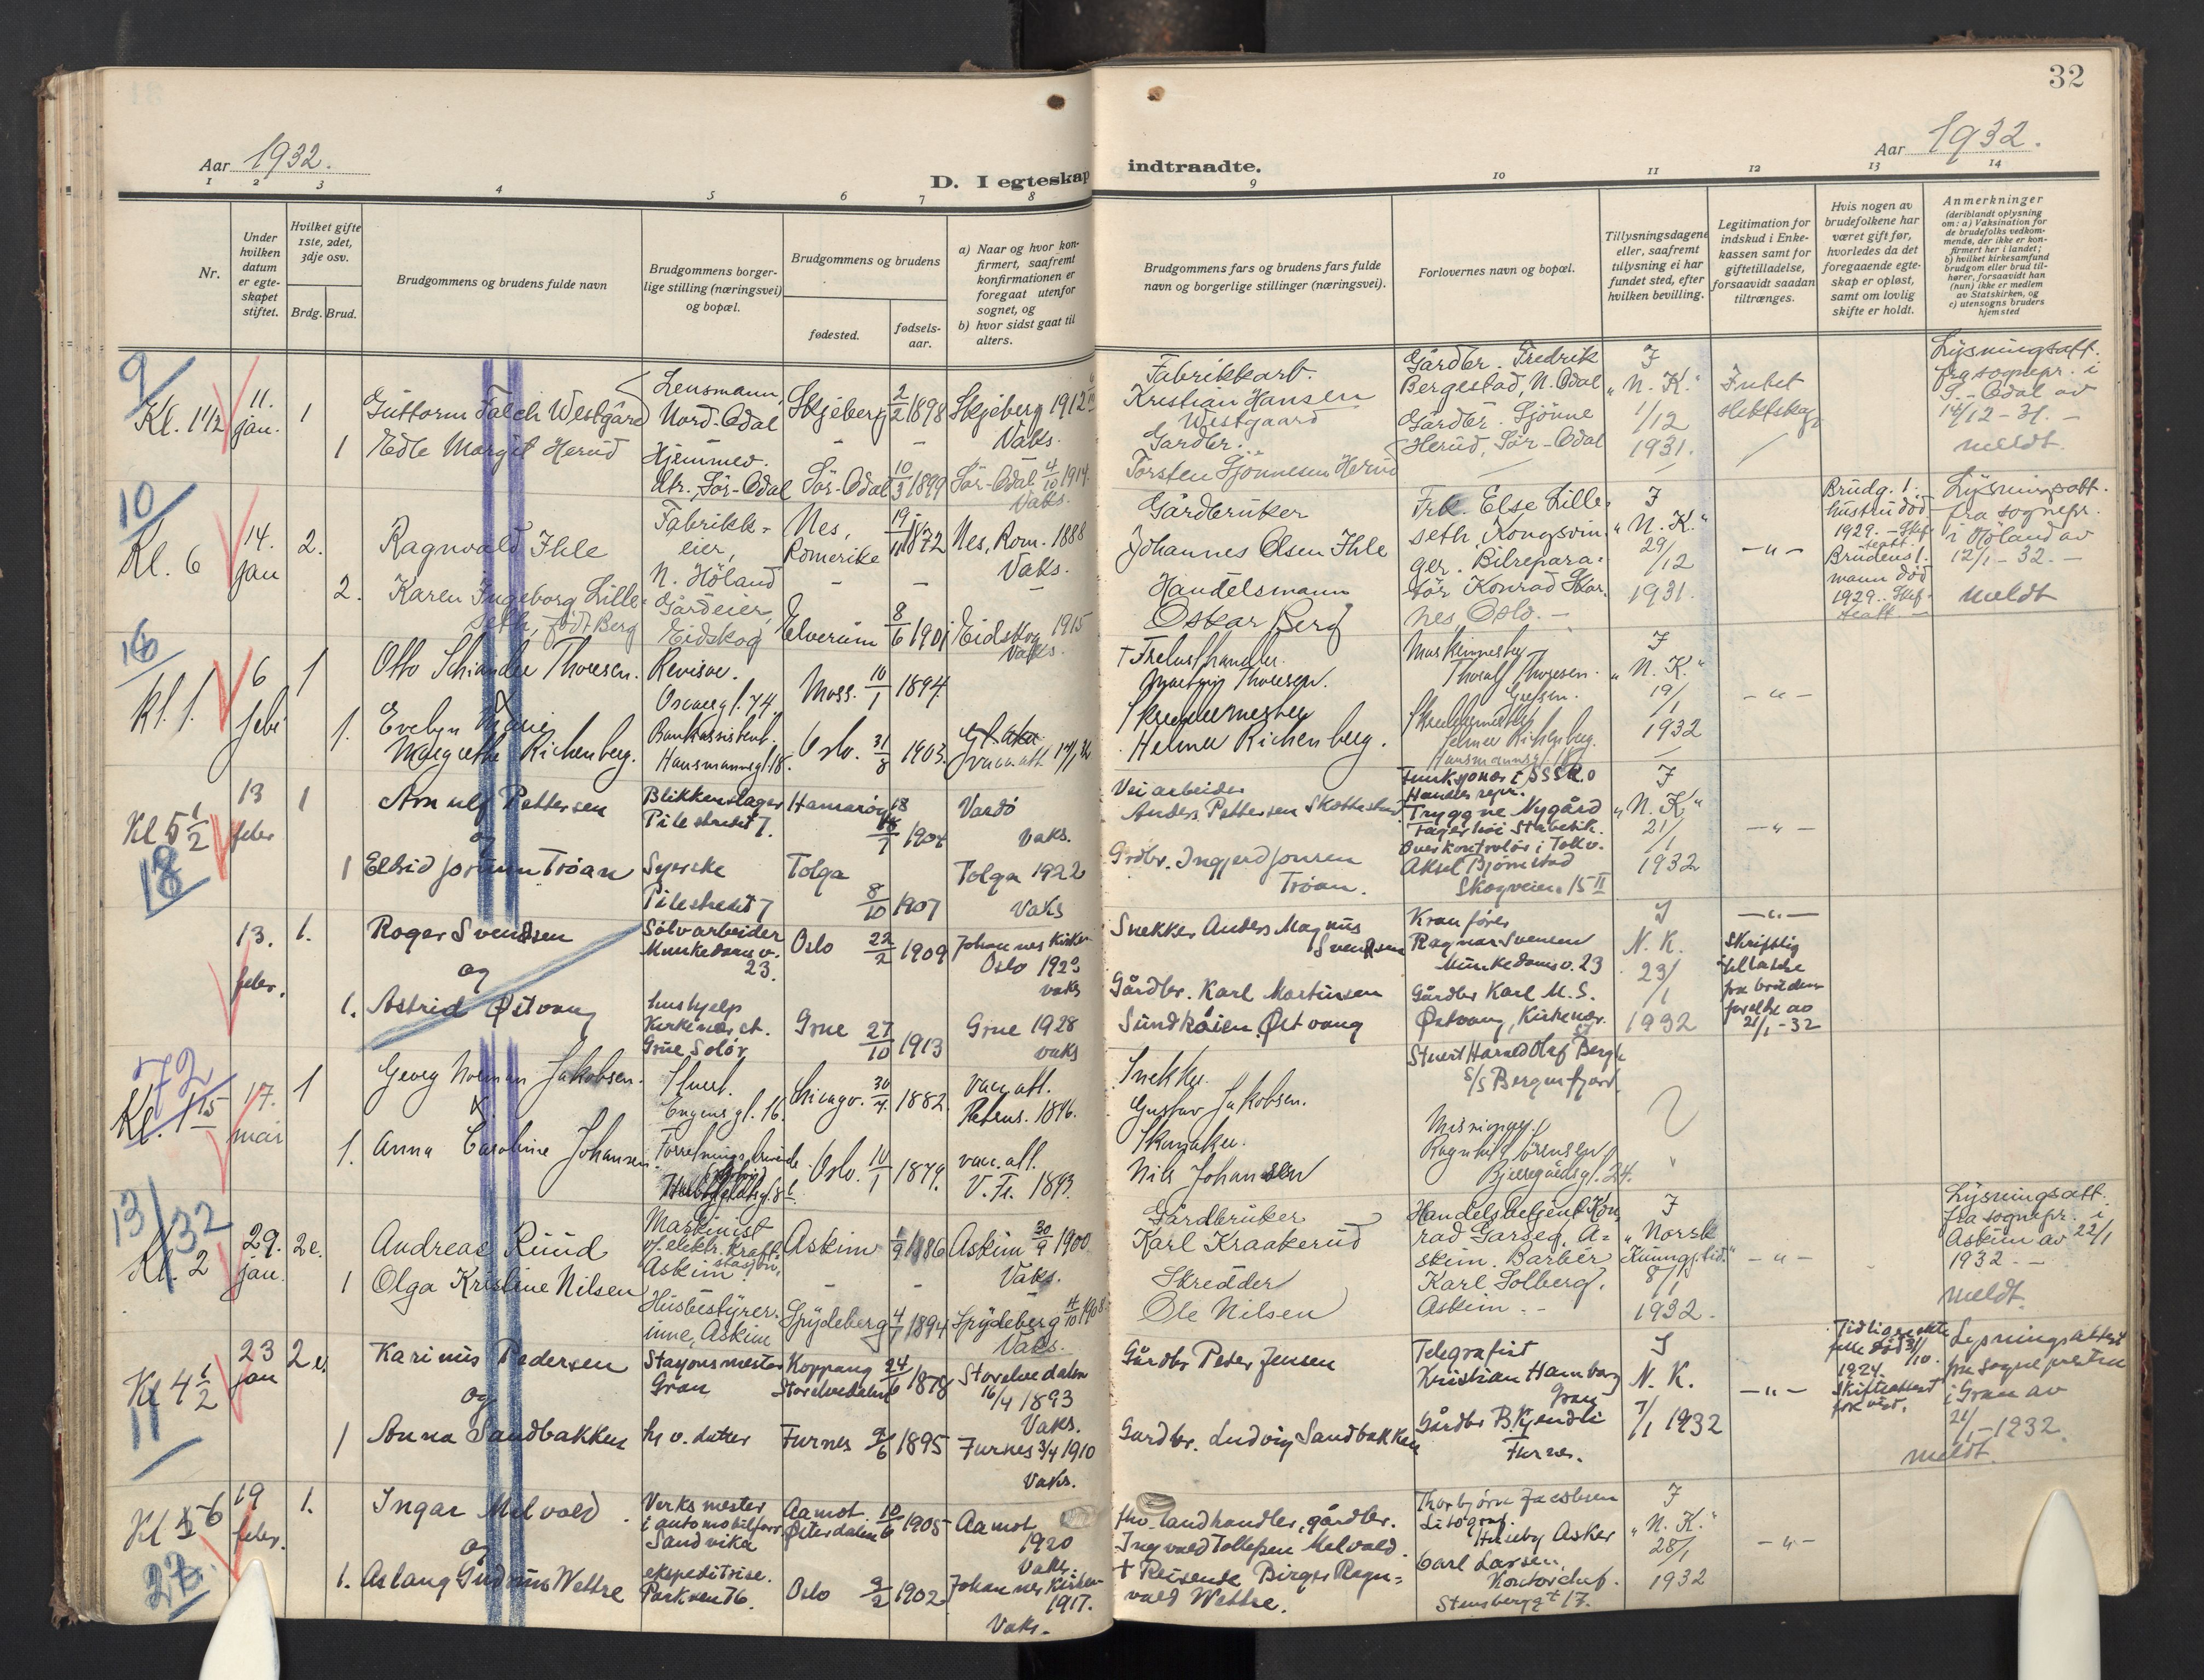 32
Aar 1932.
Aar 1932.
D. I egteskap indtraadte.
1 2 3 4 5 6 7 8 9 10 11 12 13 14
Nr.
Under
hvilken
datum
er egte-
skapet
stiftet.
Hvilket gifte
1ste, 2det,
3dje osv.
Brdg. Brud.
Brudgommens og brudens fulde navn
Brudgommens borger-
lige stilling (næringsvei)
og bopæl.
Brudgommens og brudens
fødested.
fødsels-
aar.
a) Naar og hvor kon-
firmert, saafremt
konfirmationen er
foregaat utenfor
sognet, og
b) hvor sidst gaat til
alters.
Brudgommens fars og brudens fars fulde
navn og borgerlige stillinger (næringsvei).
Forlovernes navn og bopæl.
Tillysningsdagene
eller, saafremt
tillysning ei har
fundet sted, efter
hvilken bevilling.
Legitimation for
indskud i Enke-
kassen samt for
giftetilladelse,
forsaavidt saadan
tiltrænges.
Hvis nogen av
brudefolkene har
været gift før,
hvorledes da det
foregaaende egte-
skap er opløst,
samt om lovlig
skifte er holdt.
Anmerkninger
(deriblandt oplysning
om: a) Vaksination for
de brudefolks vedkom-
mende, der ikke er kon-
firmert her i landet;
b) hvilket kirkesamfund
brudgom eller brud til-
hører, forsaavidt han
(nun) ikke er medlem
av Statskirken, og
c) utensogns bruders
hjemsted
9
Kl. 1 1/2
11.
jan.
1
Guttorm Falch Westgård
Lensmann,
Nord-Odal
Skjeberg
2/2 1898
Skjeberg 1912
Vaks.
Fabrikkarb.
Kristian Hansen
Westgaard
Gårdbr. Fredrik
Bergestad, N. Odal
I
"N. K."
1/12
1931.
Intet
slektskap
Lysningsatt.
fra sognepr. i
S.-Odal av
14/12-31.-
meldt.
1
Edle Margit Herud
Hjemmev.
dtr., Sör-Odal
Sör-Odal
10/3 1899
Sör-Odal 4/10 1914.
Vaks.
Gardbr.
Torsten Gjönnesen Herud
Gårdbr. Gjönne
Herud, Sör-Odal
10
Kl. 6
14.
jan
2.
Ragnvald Ihle
Fabrikk-
eier,
N. Höland
Nes,
Romerike
19/11 1872
Nes, Rom. 1888
Vaks.
Gårdbruker
Johannes Olsen Ihle
Frk. Else Lille-
seth, Kongsvin-
ger. Bilrepara-
tör Konrad Skar-
nes, Oslo.-
I
"N. K."
29/12
1931.
-"-
Brudg. 1.
hustru död
1929.- Skif-
teatt.
Brudens 1.
mann död
1929.- Skif-
teatt.-
Lysningsatt.
fra sognepr.
i Höland av
12/1-32.-
meldt
2.
Karen Ingeborg Lille-
seth, födt Berg
Gårdeier,
Eidskog
Elverum
8/6 1901
Eidskog 1915
Vaks.
Handelsmann
Oskar Berg
16
Kl. 1.
6
febr
1
Otto Schiander Thoresen.
Revisor.
Oscarsgt. 74.
Moss.
10/1 1894
Thoresen.
Thoralf Thoresen.
Grefsen.
I
"N. K."
19/1
1932
-"-
1.
Evelyn Marie
Margrethe Richenberg.
Bankassistent.
Hausmannsgt. 18.
Oslo.
31/8 1903.
Skreddermester
Helmer Richenberg.
Skreddermester
Helmer Richenberg.
Hausmannsgt. 18
Kl 5 1/2
18
13
febr
1
Arnulf Pettersen
og
Blikkenslager
Pilestredet 7.
Hamarøy
18/7 1904
Vardö
Vaks.
Veiarbeider
Anders Pettersen
Handelsrepr.
Tryggve Nygård
I
"N. K."
21/1
1932
-"-
1
Elbid Jorunn Tröan
Syerske
Pilestredet 7
Tolga
8/10 1907
Tolga 1922
Vaks
Grdbr. Ingjerd Jonsen
Tröan.
Overkontrolör i Tollv.
Aksel Bjørnstad
Skogveien 15 II
13.
febr.
1.
Roger Svendsen
og
Sølvarbeider
Munkedamsv.
23.
Oslo
22/2 1909
Johannes Kirke
Oslo 1923
vaks
Snekker Anders Magnus
Svendsen
Kranfører
Ragnar Svensen
Munkedamsv. 23
I
N. K.
23/1
1932
-"-
Skriftlig
tillatelse
fra brudens
foreldre av
21/1-32
1.
Astrid Østvang
hushjelp
Kirkenær st.
Grue Solør
Grue
27/10 1913
Grue 1928
vaks
Gårdbr. Karl Martinsen
Sundkåien Østvang
Gårdbr Karl M. S.
Østvang, Kirkenær.
72
Kl. 1 15
17.
mai
1
Georg Norman Jakobsen.
&.
Stuert.
Engensgt. 16.
Chicago.
30/4 1882.
vac. att.
Petrus. 1896.
Snekker.
Gustav Jakobsen.
Stuert Harald Olaf Bergh
S/S Bergensfjord
1.
Anna Caroline Johansen.
Oslo.
10/1 1879.
vac. att.
V. Fr. 1893.
Skomaker.
Nils Johansen
Ragnhild Sörensen
Bjerregårdsgt. 24.
13/32
Kl. 2
29.
jan.
2e.
Andreas Ruud
Maskinist
v/ elektr. kraft-
stasjon,
Askim
Askim
1/9 1886
Askim 30/9 1900
Vaks.
Gårdbruker
Karl Kraakerud
Handelsbetjent Kon-
rad Garseg, A-
skim. Barbér
Karl Solberg,
Askim.-
I
"Norsk
Kunngj.tid."
8/1
1932.
-"-
Lysningsatt.
fra sognepr. i
Askim av 22/1
1932.-
meldt.
1
Olga Kristine Nilsen
Husbestyrer-
inne, Askim
Spydeberg
4/7 1894
Spydeberg 11/10 1908
Vaks.
Skredder
Ole Nilsen
Kl 4 1/2
11
23
jan
2e.
Karinus Pedersen
og
Stasjonsmester
Gran
Koppang
Storelvedalen
24/6 1878
Storelvedalen
16/4 1893
Vaks.
Gårdbr Peder Jensen
Telegrafist
Kristian Hamborg
Gran
I
N. K.
7/1 1932
-"-
Tidligere ekte-
felle død 31/10
1924.
Skifteattest
forevist.
Lysningsattest
fra sognepresten
i Gran av
21/1-1932.
meldt.
1
Anna Sandbakken
hj v. datter
Furnes
9/6 1895
Furnes 3/4 1910
Vaks.
Gardbr. Ludvig Sandbakken
Gårdbr B. Kjendli
Furnes.
Kl 5 6
19
febr.
1.
Ingar Melvold
og
Verksmester
i automobilforr.
Sandvika
Aamot.
Østerdalen
10/6 1905
Aamot
1920
Vaks.
fhv. landhandler, gårdbr.
Ingvald Tollefsen Melvold.
Thorbjørn Jacobsen
Litograf.
Huseby Asker
I
"N. K."
28/1
1932
-"-
1.
Aslaug Gudrun Wettre
ekspeditrise.
Parkveien 76.
Oslo
9/2 1902
Johannes Kirken
1917.
Vaks.
† Reisende Birger Ragn-
vald Wettre.
Carl Larsen.
Kontorchef.
Stensberggt 17.